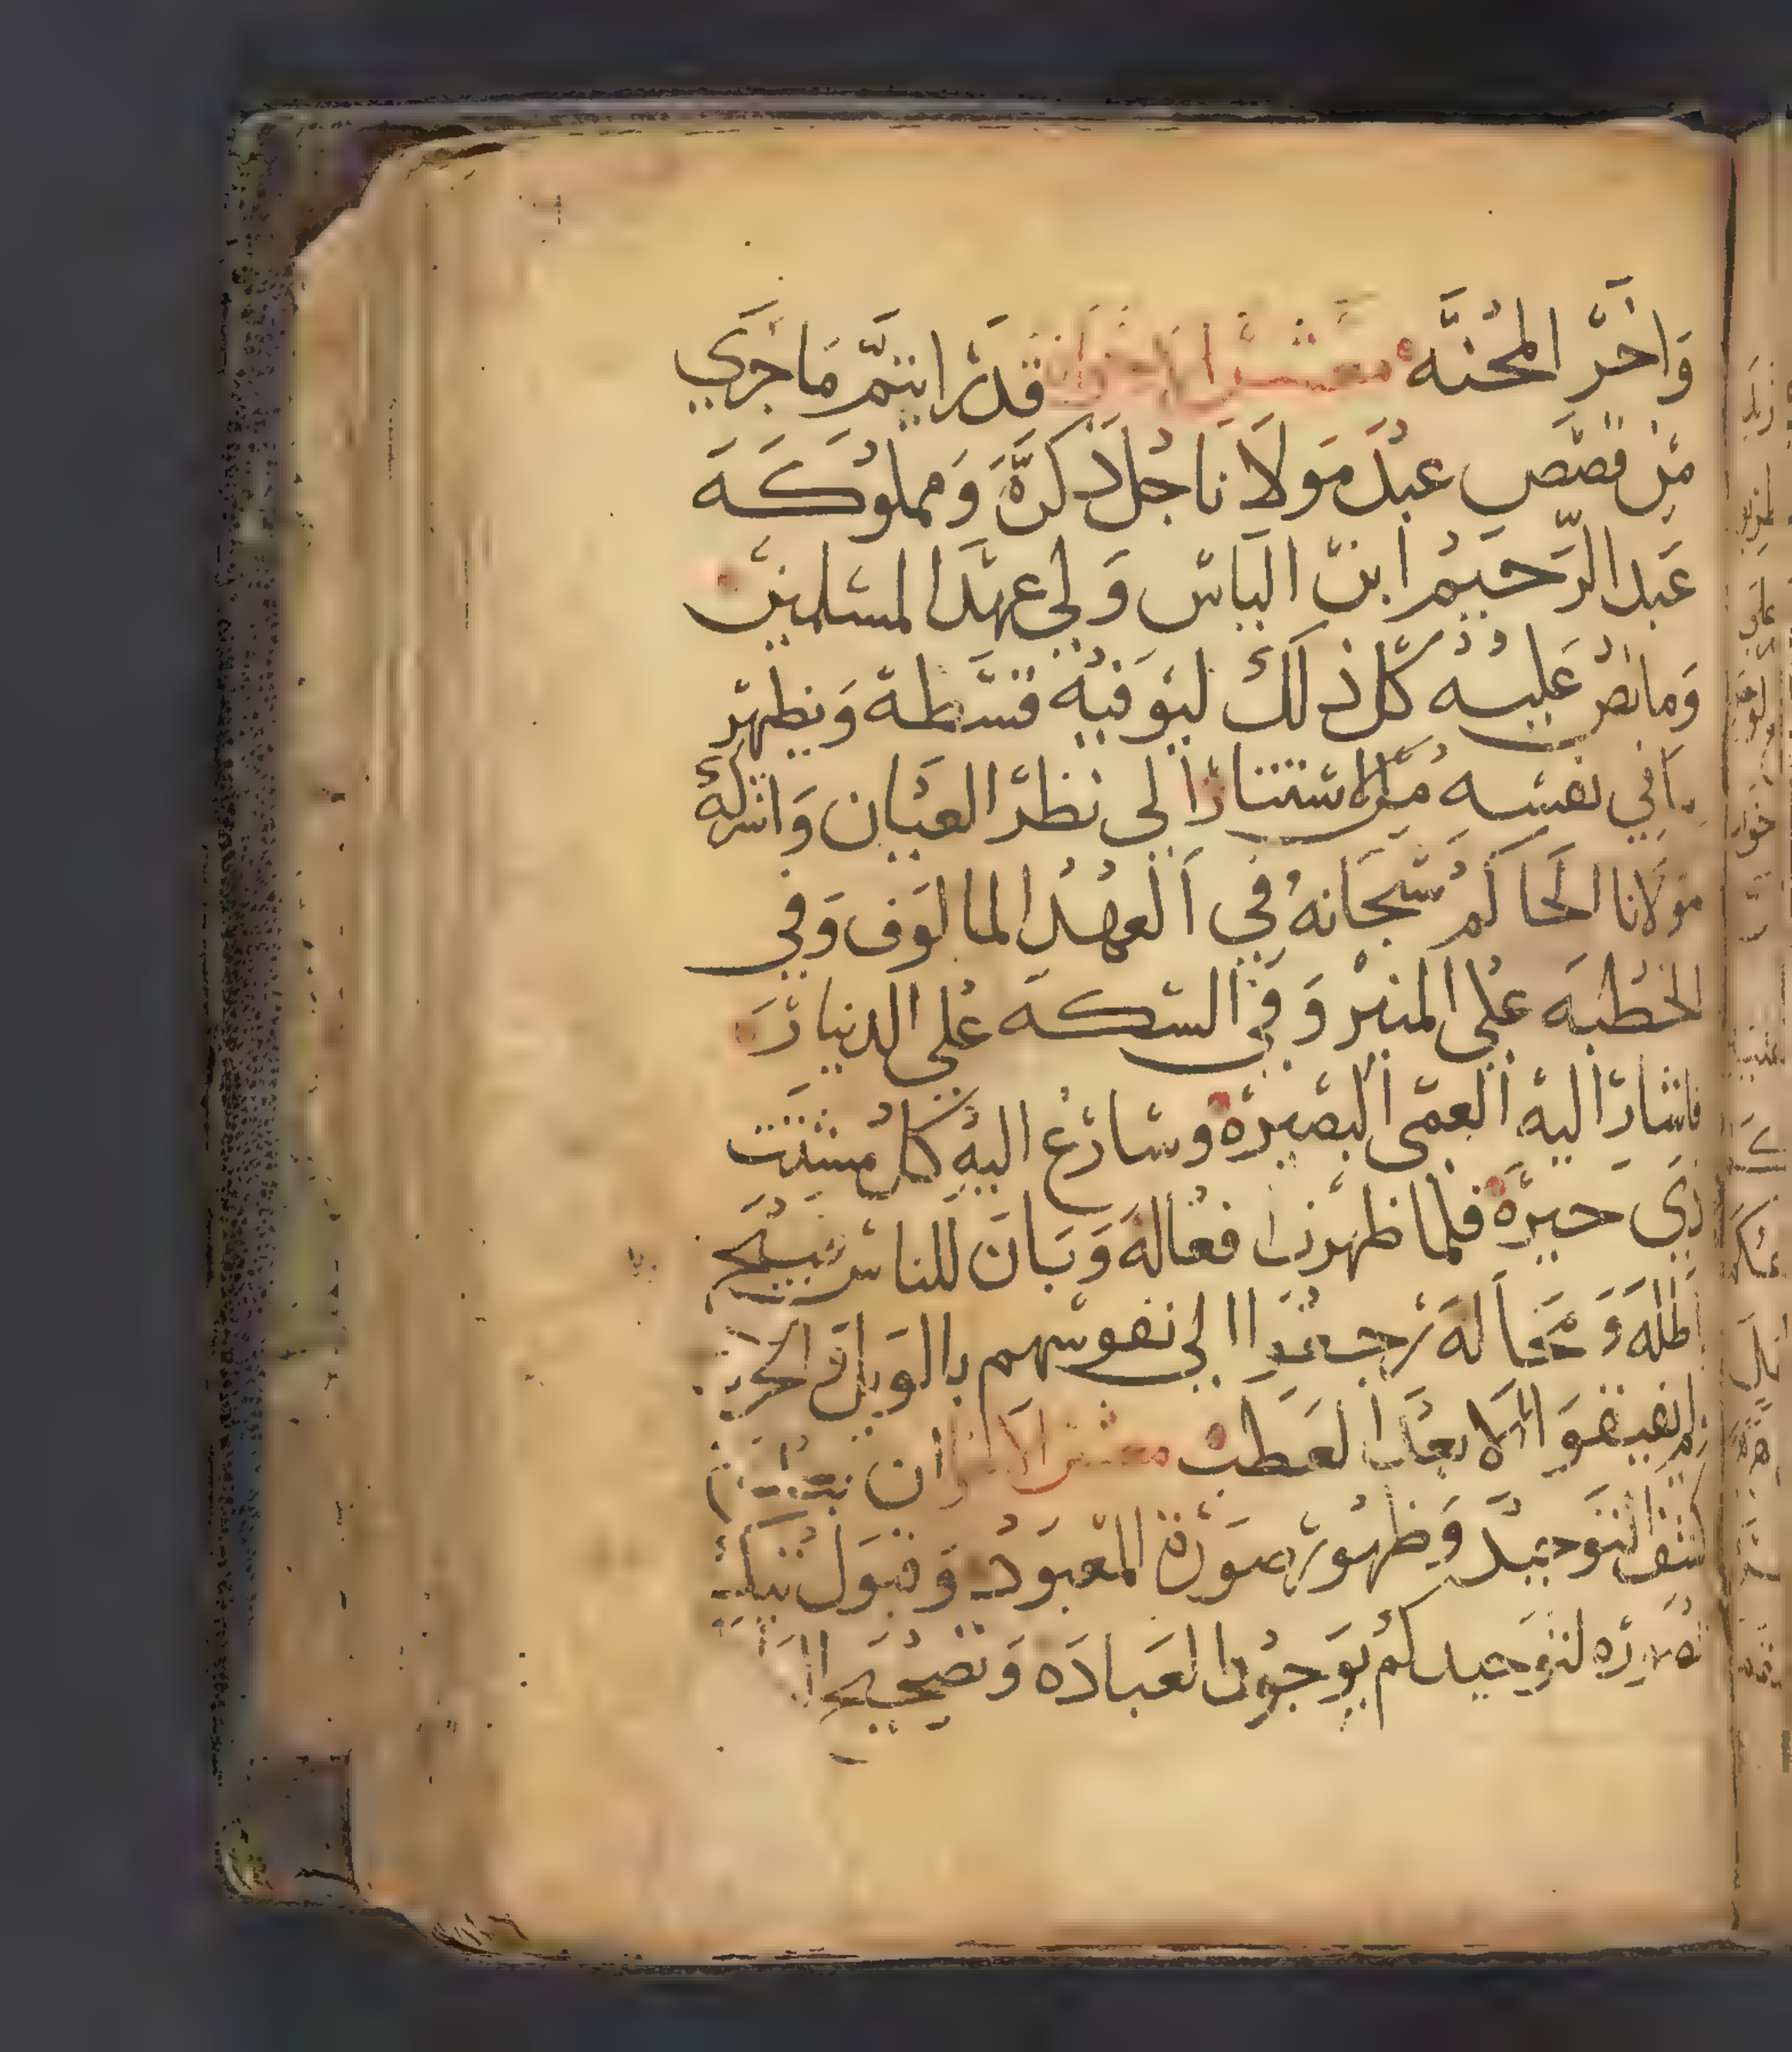 وَاخرّ المحُنَّه معشر الاخوان قد رايتمّ مَا جرَي
مِن قصَص عبدُ مَولَانا جلُ ذكرهَّ وَمملوُكَهَ
عَبد الرّحيَم ابنّ الياس وَلي عهدَ المسلمين
وَما نصُ عَليه كلّ ذلكَ ليوَفيُه قسَطة وَيظهر
ما في نفسه منُ الاستتارّ الي نظرّ العيَان وَاشركهُ
مَولَانا الحَاكمُ سُبحَانهُ في العهُدُ المالوَف وَفي
الخطُبهَ عُلي المنبرّ وَفي السكه عُلي الدينارَ
فاشارّ اليهِ العمّى البصيرّة وسَارعُ اليهِ كلُ مشتت
ذي حيرّة فلما ظهرت افعُالهَ وَبَانَ للناسّ قبيُح
ظلمَه وَمحَالهَ رجعُوا الي نفوسهم بالوَيل وَالحرب
ولم يفيقوَا الا بعدَ العَطب معشر الاخوان
كشف التوَحيدّ وَظهُور صوَرة المعبَودُ وَقبَولُ
لتوَحيدكمُ بوَجوُد العَبادَه وَتصحُيح